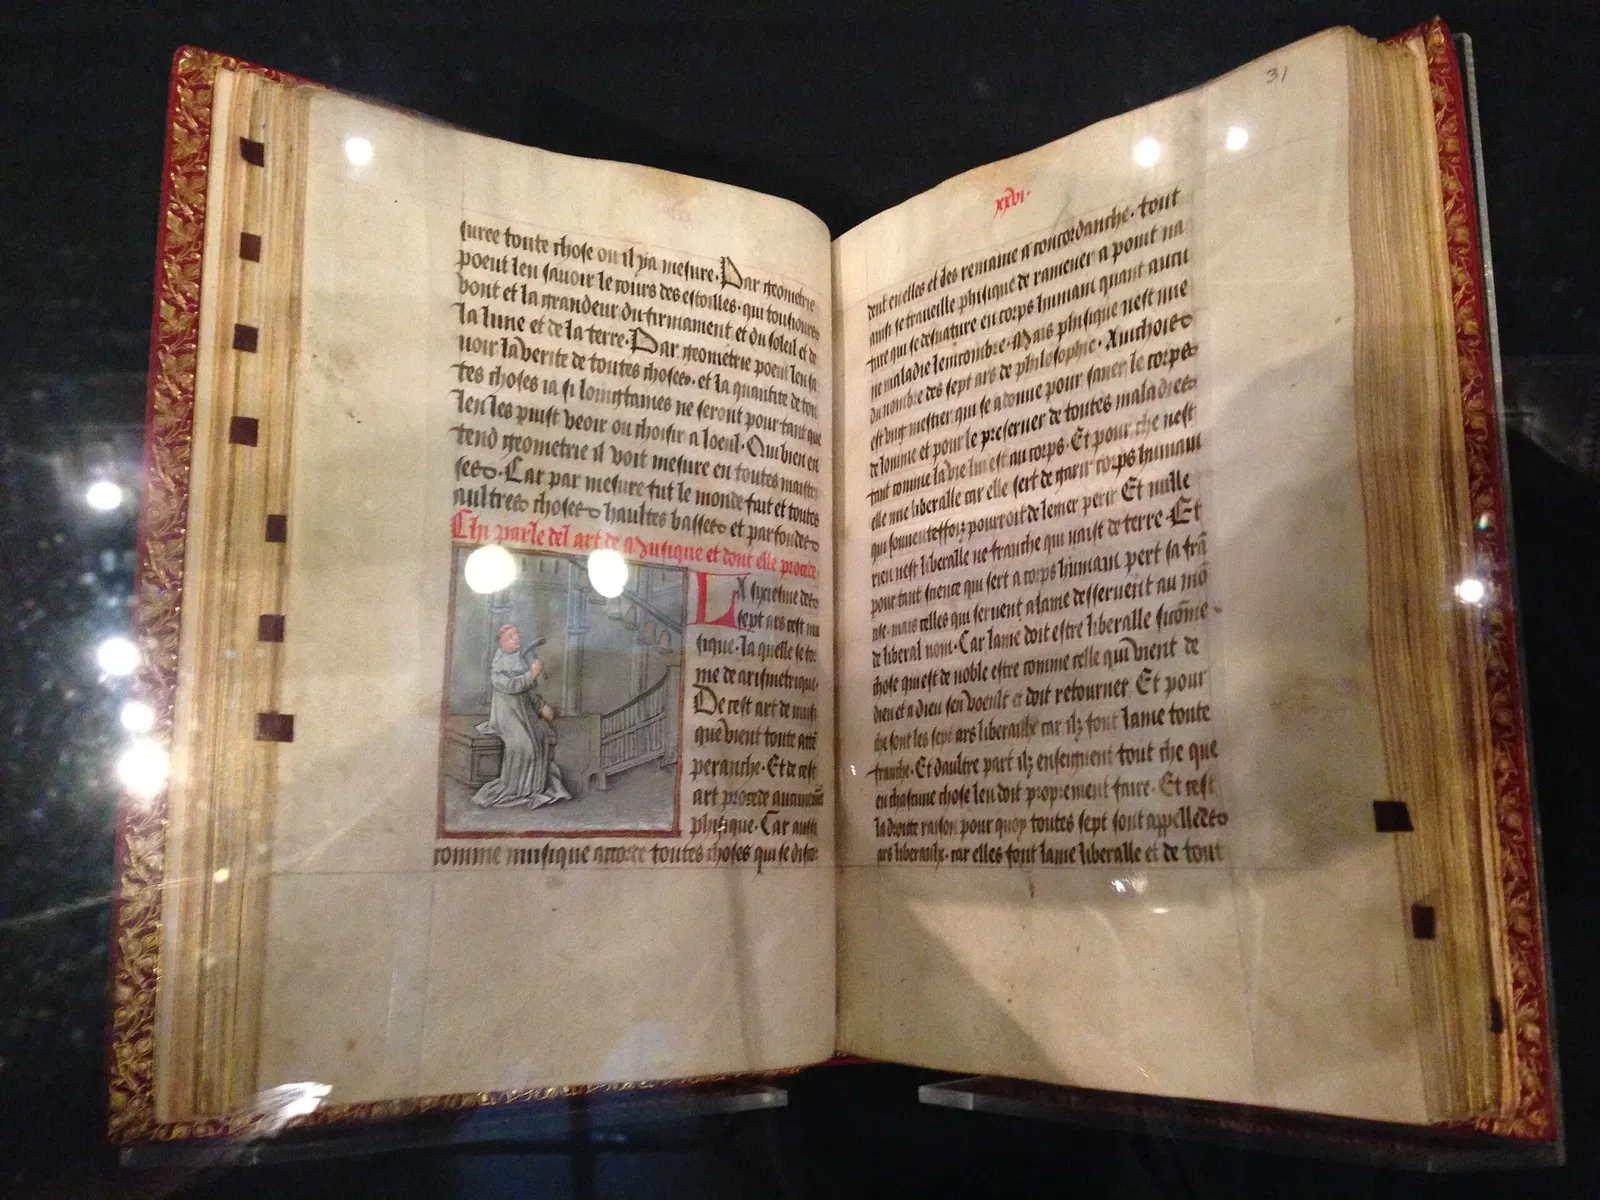 suree toute chose ou il ya mesure. Par geometrie
poeut len sauoir le cours des estoilles. qui tousiours
vont et la grandeur du firmament et du soleil et de
la lune et de la terre. Par geometrie poeut len sa
uoir la verite de toutes choses. et la quantite de tou
tes choses ia si loingtaines ne seront pour tant que
len les puist veoir ou choisir a loeul. Qui bien en
tend geometrie il voit mesure en toutes maistri
ses. Car par mesure fut le monde fait et toutes
aultres choses haultes basses et parfondes
Chi parle del art de Musique et dont elle procede
La syxiesme des
sept ars cest mu
sique. la quelle se for
me de arismetique.
De cest art de musi
que vient toute attē
peranche. Et de cest
art procede
phisique. Car aussi
comme musique accorde toutes choses qui se discor
31
xxvi.
dent en elles et des remaine a concordanche. tout
aussi se traueille phisique de ramener a point na
ture qui se desnature en corps humain quant aucu
ne maladie lencombre. Mais phisique nest mie
du nombre des sept ars de philosophie. Anchois
est vng mestier qui se adonne pour saner le corps
de lomme et pour le preseruer de toutes maladies
tant comme la vie luy est au corps. Et pour che nest
elle mie liberalle car elle sert de garir corps humain
qui souuenteffoiz pourroit de legier perir Et nulle
rien nest liberalle ne franche qui naist de terre. Et
pour tant science qui sert a corps humain pert sa frā
cise. mais celles qui seruent a lame desseruent au mō
de liberal nom. Car lame doit estre liberalle sicōme
chose qui est de noble estre comme celle qui vient de
dieu et a dieu sen voeult et doit retourner Et pour
che sont les sept ars liberaulx car ilz font lame toute
franche. Et daultre part ilz enseignent tout che que
en chascune chose len doit proprement faire. Et cest
la droite raison pour quoy toutes sept sont appellees
ars liberaulx. car elles font lame liberalle et de tout